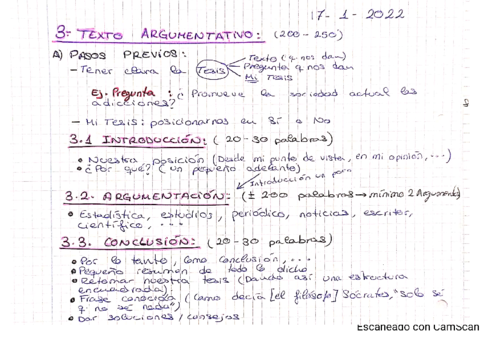 17-1-2022
3- TEXTO ARGUMENTATIVO: (200-250)
A) PASOS PREVIOS:
Texto (q nos dan)
- Tener clara la TESIS Pregunta q nos dan
Mi TESIS
Ej. Pregunta: ¿Promueve la sociedad actual las
adicciones?
- Mi TESIS: posicionarnos en Sí o No
3.1 INTRODUCCIÓN: (20-30 palabras)
• Nuestra posición (Desde mi punto de vista, en mi opinión,...)
• ¿Por qué? (un pequeño adelanto)
Introducción un
3.2. ARGUMENTACIÓN: (± 200 palabras → mínimo 2 Argumentos)
• Estadística, estudios, periódico, noticias, escritor,
científico, ...
3.3. CONCLUSIÓN: (20-30 palabras)
• Por lo tanto, como conclusión, ...
• Pequeño resumen de todo lo dicho
• Retomar nuestra tesis (Dando así una estructura
encuadrada)
• Frase conocida (Como decía [el filósofo] Sócrates, "solo sé
q no sé nada")
• Dar soluciones / consejos
Escaneado con CamScan